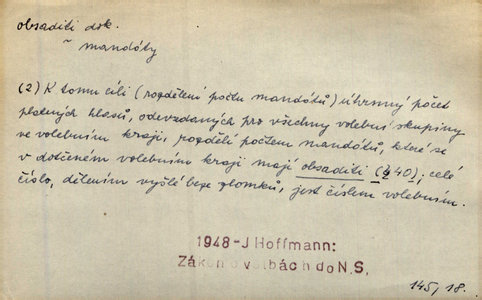 obsaditi dok.
~ mandáty
(2) K tomu cíli (rozdělení počtu mandátů) úhrnný počet
platných hlasů, odevzdaných pro všechny volební skupiny
ve volebním kraji, rozdělí počtem mandátů, které se
v dotčeném volebním kraji mají obsaditi (§ 40); celé
číslo, dělením vyšlé beze zlomků, jest číslem volebním.
1948-J Hoffmann:
Zákon o volbách do N.S.
145, 18.